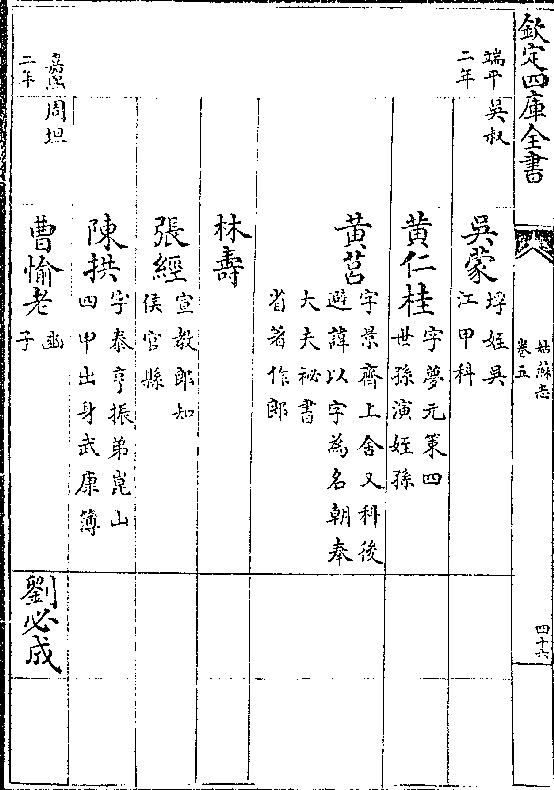 欽定四庫全書
姑蘇志
卷五
四十六
端平
二年
吳叔
吳蒙
垺姪吳
江甲科
黃仁桂
字夢元策四
世孫演姪孫
黃莒
字景齊上舍又科後
避諱以字為名朝奉
大夫祕書
省著作郎
林壽
張經
宣教郎知
侯官縣
陳拱
字泰亨振弟崑山
四甲出身武康簿
嘉熙
二年
周坦
曹愉老
豳
子
劉必成